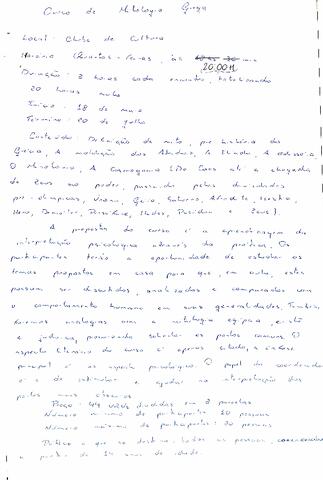 Curso de Mitologia Grega
Local: Clube de Cultura
Horário: Quintas-feiras, às
20:00H
Duração: 2 horas cada encontro, totalizando
20 horas aula
Início: 18 de maio
Término: 20 de julho
Conteúdo: Definição de mito, pré-história da
Grécia, A maldição dos Atridas, A Ilíada, A Odisséia,
O A Cosmogonia (Do Caos até a chegada
de Zeus ao poder, passando pelas divindades
pré-olímpicas, Urano, Gaia, Saturno, Afrodite, Hestia,
Hera, Demeter, Perséfone, Hades, Posidon e Zeus).
A proposta do curso é a aprendizagem da
interpretação psicológica através da prática. Os
participantes terão a oportunidade de estudar os
temas propostos em casa para que, em aula, estes
possam ser discutidos, analizados e comparados com
o comportamento humano em suas generalidades. Também,
faremos analogias com a mitologia egípcia, cristã
e judaica, procurando salientar os pontos comuns. O
aspecto literário do curso é apenas citado, a ênfase
principal é ao aspecto psicológico. O papel do coordenador
é o de estimular e ajudar na interpretação dos
pontos mais obscuros.
Preço: divididas em 2 parcelas
Número mínimo de participantes: 10 pessoas
Número máximo de participantes: 30 pessoas
Público a que se destina: todas as pessoas,
a partir de 14 anos de idade.